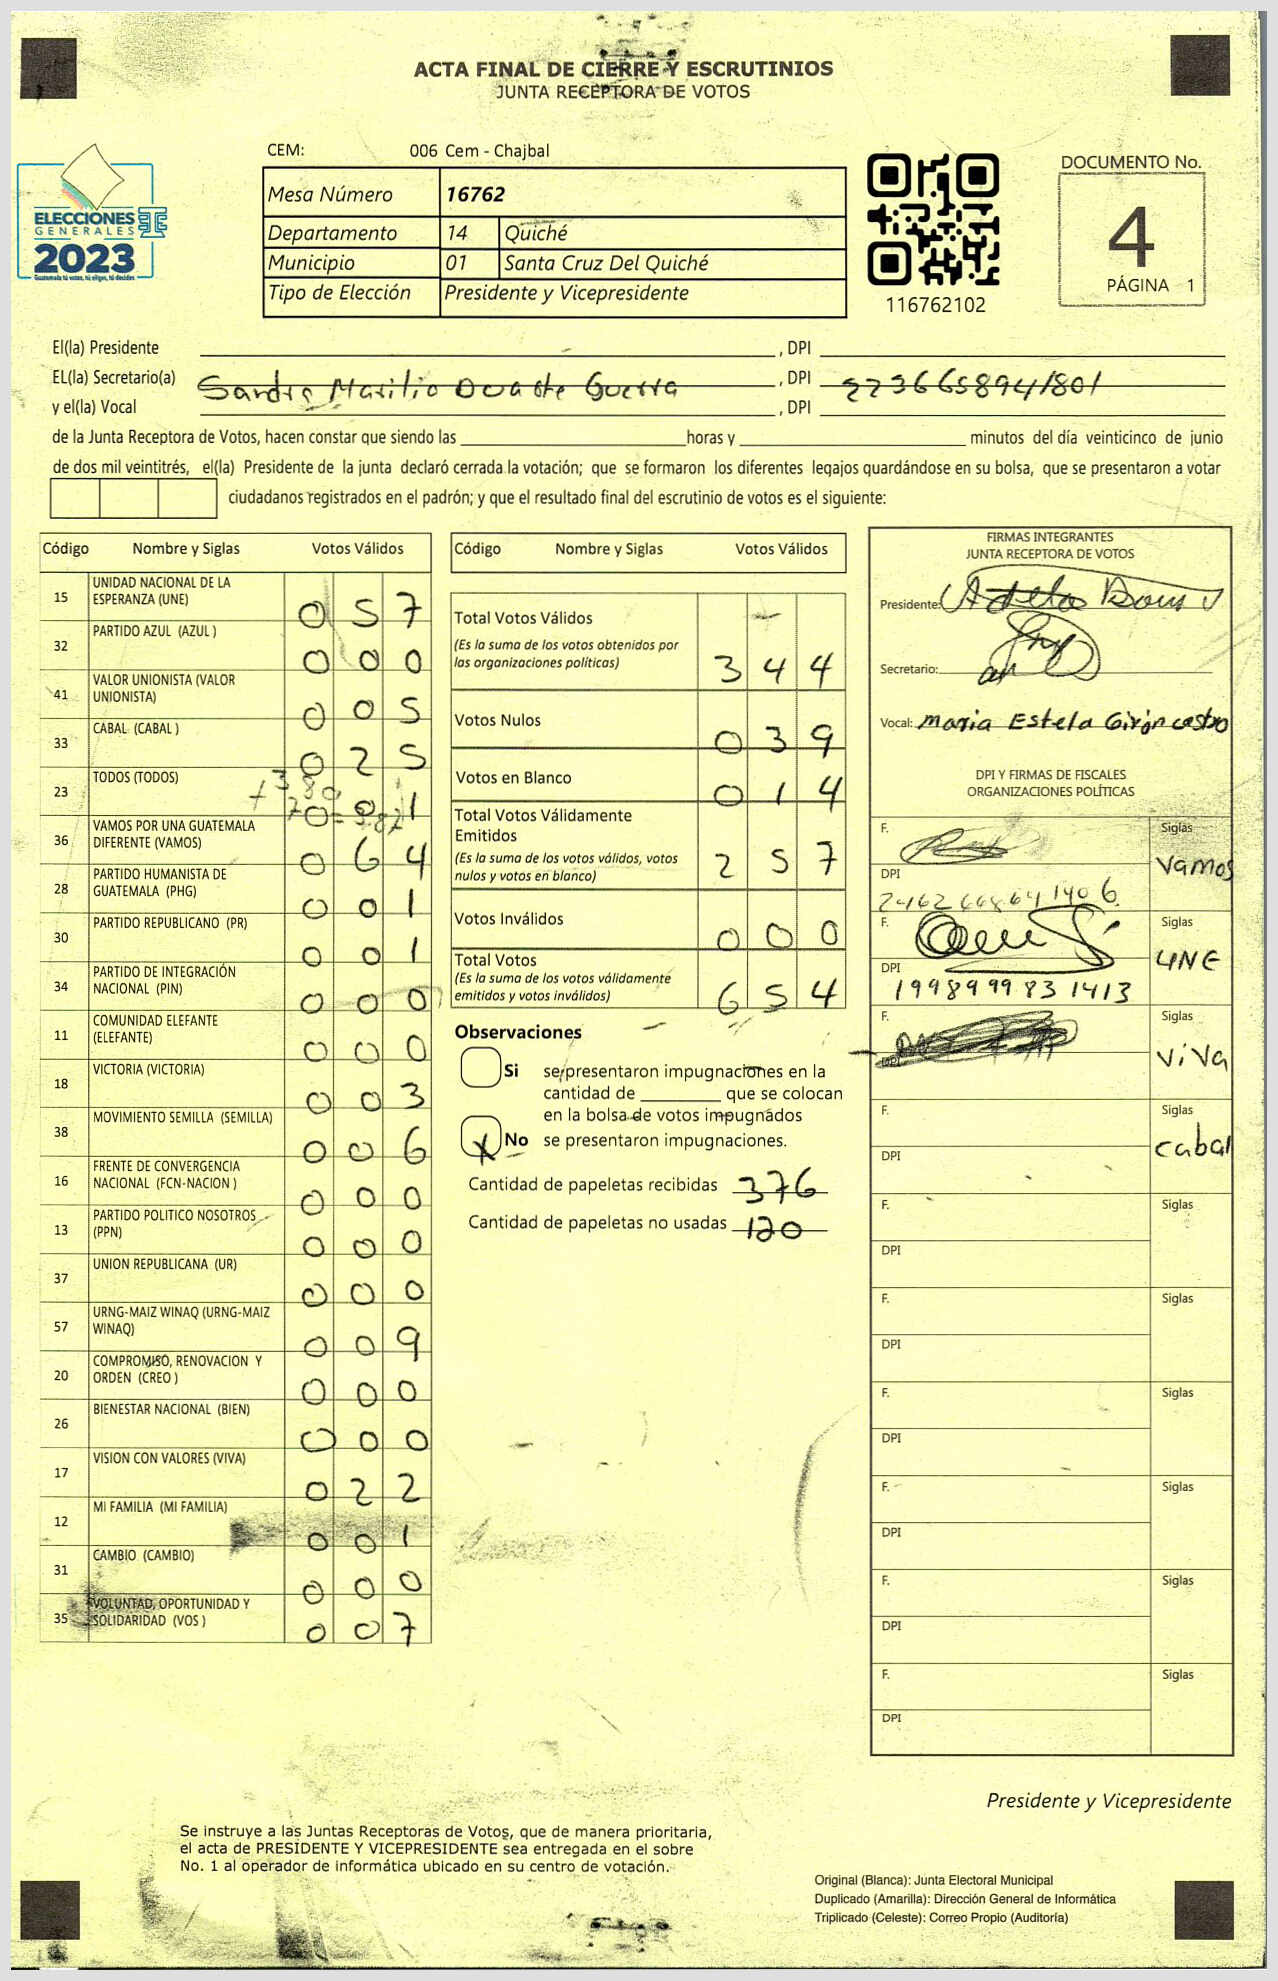 ACTA FINAL DE CIERRE Y ESCRUTINIOS
JUNTA RECEPTORA DE VOTOS
CEM: 006 Cem - Chajbal
Mesa Número 16762
Departamento 14 Quiché
Municipio 01 Santa Cruz Del Quiché
Tipo de Elección Presidente y Vicepresidente
ELECCIONES
GENERALES
2023
Guatemala tú votas, tú eliges, tú decides
116762102
DOCUMENTO No.
4
PÁGINA 1
El(la) Presidente , DPI
EL(la) Secretario(a) Sandra Marilio Duarte Guerra , DPI 2236658941801
y el(la) Vocal , DPI
de la Junta Receptora de Votos, hacen constar que siendo las horas y minutos del día veinticinco de junio
de dos mil veintitrés, el(la) Presidente de la junta declaró cerrada la votación; que se formaron los diferentes legajos guardándose en su bolsa, que se presentaron a votar
ciudadanos registrados en el padrón; y que el resultado final del escrutinio de votos es el siguiente:
Código Nombre y Siglas Votos Válidos
15 UNIDAD NACIONAL DE LA ESPERANZA (UNE) 0 5 7
32 PARTIDO AZUL (AZUL ) 0 0 0
41 VALOR UNIONISTA (VALOR UNIONISTA) 0 0 5
33 CABAL (CABAL ) 0 2 5
23 TODOS (TODOS) 0 0 1
36 VAMOS POR UNA GUATEMALA DIFERENTE (VAMOS) 0 6 4
28 PARTIDO HUMANISTA DE GUATEMALA (PHG) 0 0 1
30 PARTIDO REPUBLICANO (PR) 0 0 1
34 PARTIDO DE INTEGRACIÓN NACIONAL (PIN) 0 0 0
11 COMUNIDAD ELEFANTE (ELEFANTE) 0 0 0
18 VICTORIA (VICTORIA) 0 0 3
38 MOVIMIENTO SEMILLA (SEMILLA) 0 0 6
16 FRENTE DE CONVERGENCIA NACIONAL (FCN-NACION ) 0 0 0
13 PARTIDO POLITICO NOSOTROS (PPN) 0 0 0
37 UNION REPUBLICANA (UR) 0 0 0
57 URNG-MAIZ WINAQ (URNG-MAIZ WINAQ) 0 0 9
20 COMPROMISO, RENOVACION Y ORDEN (CREO ) 0 0 0
26 BIENESTAR NACIONAL (BIEN) 0 0 0
17 VISION CON VALORES (VIVA) 0 2 2
12 MI FAMILIA (MI FAMILIA) 0 0 1
31 CAMBIO (CAMBIO) 0 0 0
35 VOLUNTAD, OPORTUNIDAD Y SOLIDARIDAD (VOS ) 0 0 7
Código Nombre y Siglas Votos Válidos
Total Votos Válidos
(Es la suma de los votos obtenidos por
las organizaciones políticas) 3 4 4
Votos Nulos 0 3 9
Votos en Blanco 0 1 4
Total Votos Válidamente
Emitidos
(Es la suma de los votos válidos, votos
nulos y votos en blanco) 2 5 7
Votos Inválidos 0 0 0
Total Votos
(Es la suma de los votos válidamente
emitidos y votos inválidos) 6 5 4
Observaciones
Si se presentaron impugnaciones en la
cantidad de que se colocan
en la bolsa de votos impugnados
X No se presentaron impugnaciones.
Cantidad de papeletas recibidas 376
Cantidad de papeletas no usadas 120
FIRMAS INTEGRANTES
JUNTA RECEPTORA DE VOTOS
Presidente:
Secretario:
Vocal: maria Estela Girón castro
DPI Y FIRMAS DE FISCALES
ORGANIZACIONES POLÍTICAS
F. Siglas
Vamos
DPI
F. Siglas
UNE
DPI
1998999831413
F. Siglas
ViVa
DPI
F. Siglas
cabal
DPI
F. Siglas
DPI
F. Siglas
DPI
F. Siglas
DPI
F. Siglas
DPI
F. Siglas
DPI
F. Siglas
DPI
Presidente y Vicepresidente
Se instruye a las Juntas Receptoras de Votos, que de manera prioritaria,
el acta de PRESIDENTE Y VICEPRESIDENTE sea entregada en el sobre
No. 1 al operador de informática ubicado en su centro de votación.
Original (Blanca): Junta Electoral Municipal
Duplicado (Amarilla): Dirección General de Informática
Triplicado (Celeste): Correo Propio (Auditoría)